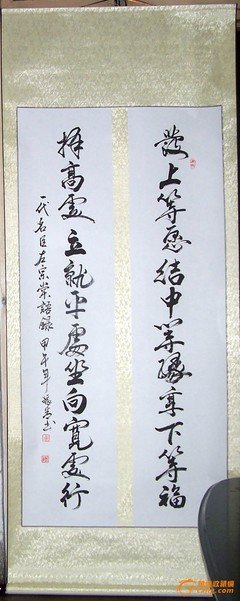 發上等愿結中等緣享下等福
擇高處立就平處坐向寬處行
一代名臣左宗棠語錄 甲午年